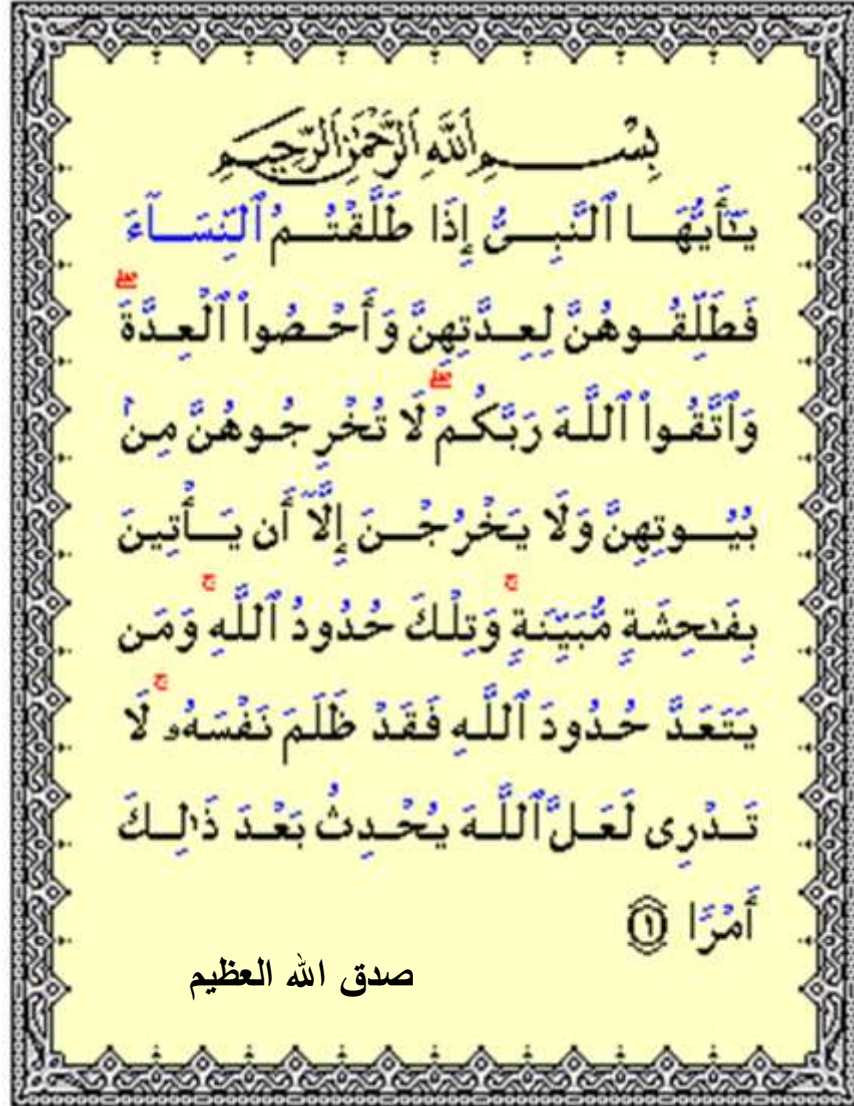 بِسْمِ ٱللَّهِ ٱلرَّحْمَٰنِ ٱلرَّحِيمِ
يَـٰٓأَيُّهَا ٱلنَّبِىُّ إِذَا طَلَّقْتُمُ ٱلنِّسَآءَ
فَطَلِّقُوهُنَّ لِعِدَّتِهِنَّ وَأَحْصُوا۟ ٱلْعِدَّةَ ۖ
وَٱتَّقُوا۟ ٱللَّهَ رَبَّكُمْ ۖ لَا تُخْرِجُوهُنَّ مِنۢ
بُيُوتِهِنَّ وَلَا يَخْرُجْنَ إِلَّآ أَن يَأْتِينَ
بِفَـٰحِشَةٍ مُّبَيِّنَةٍ ۚ وَتِلْكَ حُدُودُ ٱللَّهِ ۚ وَمَن
يَتَعَدَّ حُدُودَ ٱللَّهِ فَقَدْ ظَلَمَ نَفْسَهُۥ ۚ لَا
تَدْرِى لَعَلَّ ٱللَّهَ يُحْدِثُ بَعْدَ ذَٰلِكَ
أَمْرًا ١
صدق الله العظيم